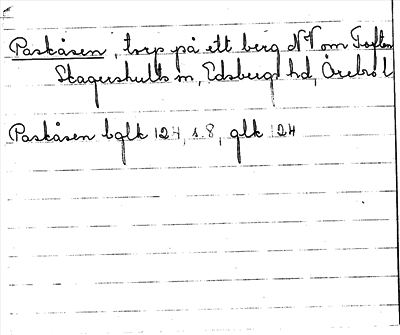 Paskåsen, torp på ett berg NV om Toften
Skagershults sn, Edsbergs hd, Örebro l
Paskåsen bglk 124, s. 8, glk 124